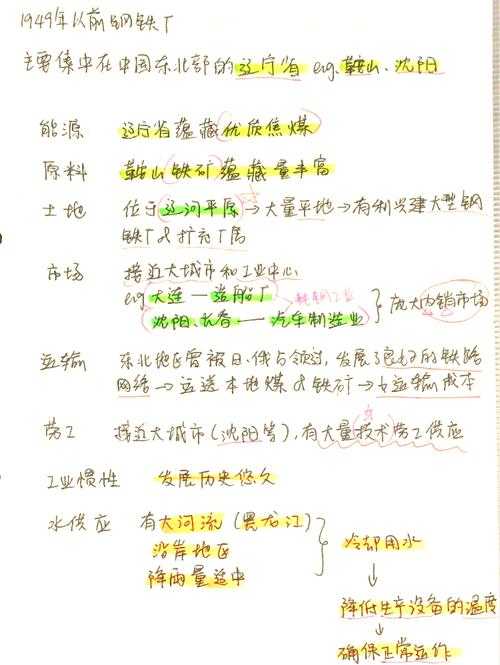 1949年以前钢铁厂
主要集中在中国东北部的辽宁省 e.g. 鞍山、沈阳
能源 辽宁省蕴藏优质焦煤
原料 鞍山铁矿蕴藏量丰富
土地 位于辽河平原 → 大量平地 → 有利兴建大型钢
铁厂 & 扩充厂房
市场 接近大城市和工业中心
e.g. 大连 — 造船厂 耗钢工业
沈阳、长春 — 汽车制造业 } 庞大内销市场
运输 东北地区曾被日、俄占领过, 发展了良好的铁路
网络 → 运送本地煤 & 铁矿 → ↓运输成本
劳工 接近大城市 (沈阳等), 有大量技术劳工供应
工业惯性 发展历史悠久
水供应 有大河流 (黑龙江)
沿岸地区 } 冷却用水
降雨量适中 ↓
降低生产设备的温度
↓
确保正常运作